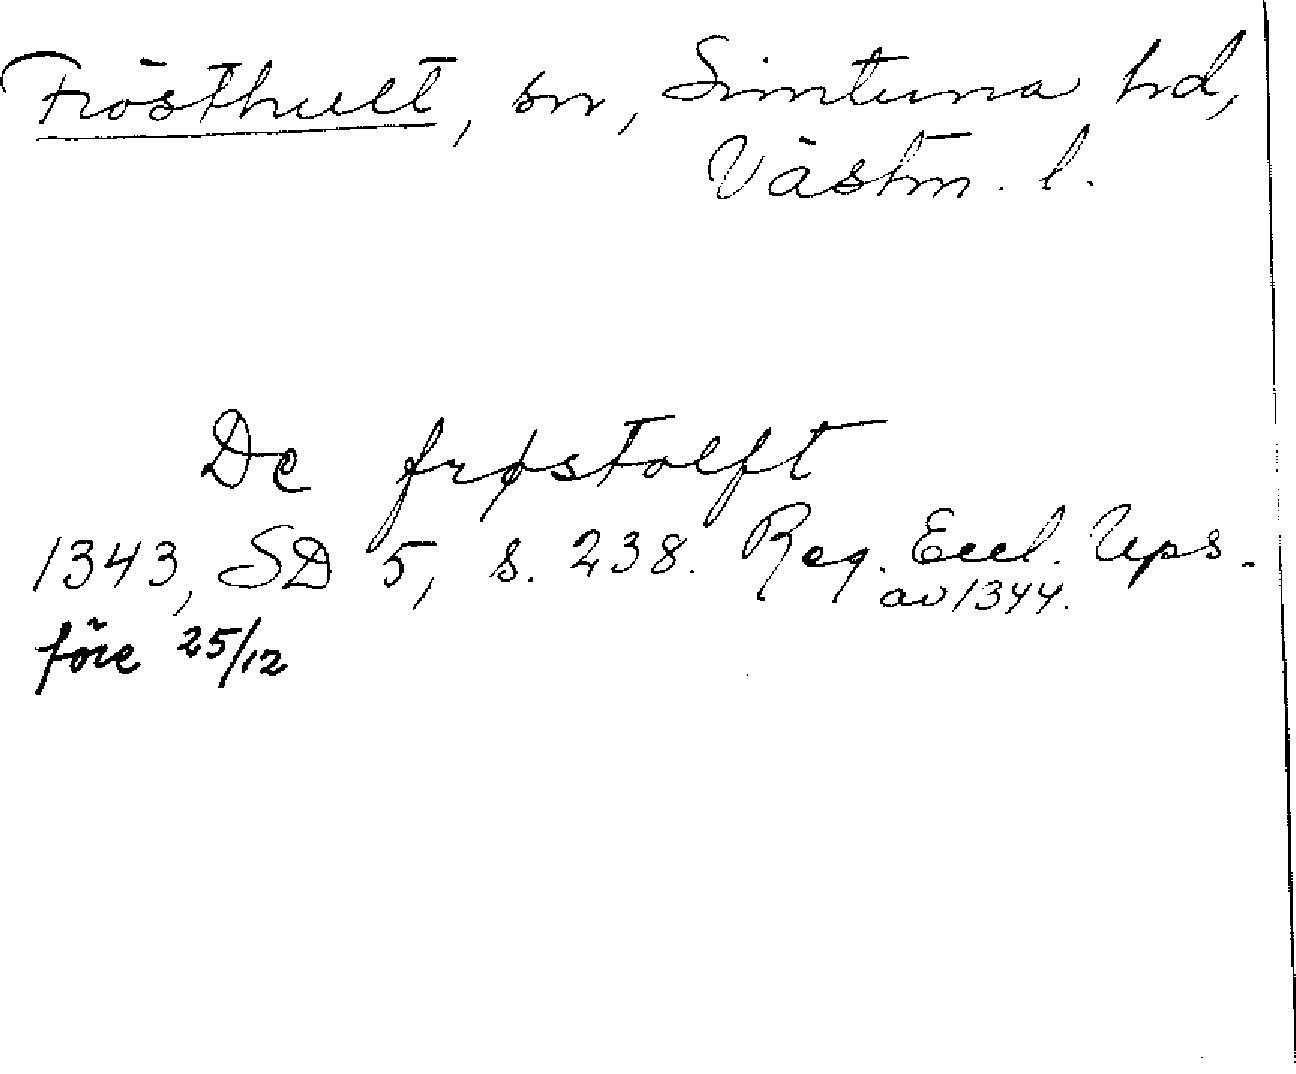 Frösthult, sn, Simtuna hd,
Västm. l.
De frøstolft
1343, SD 5, s. 238. Reg. Eccl. Ups.
av 1344.
före 25/12